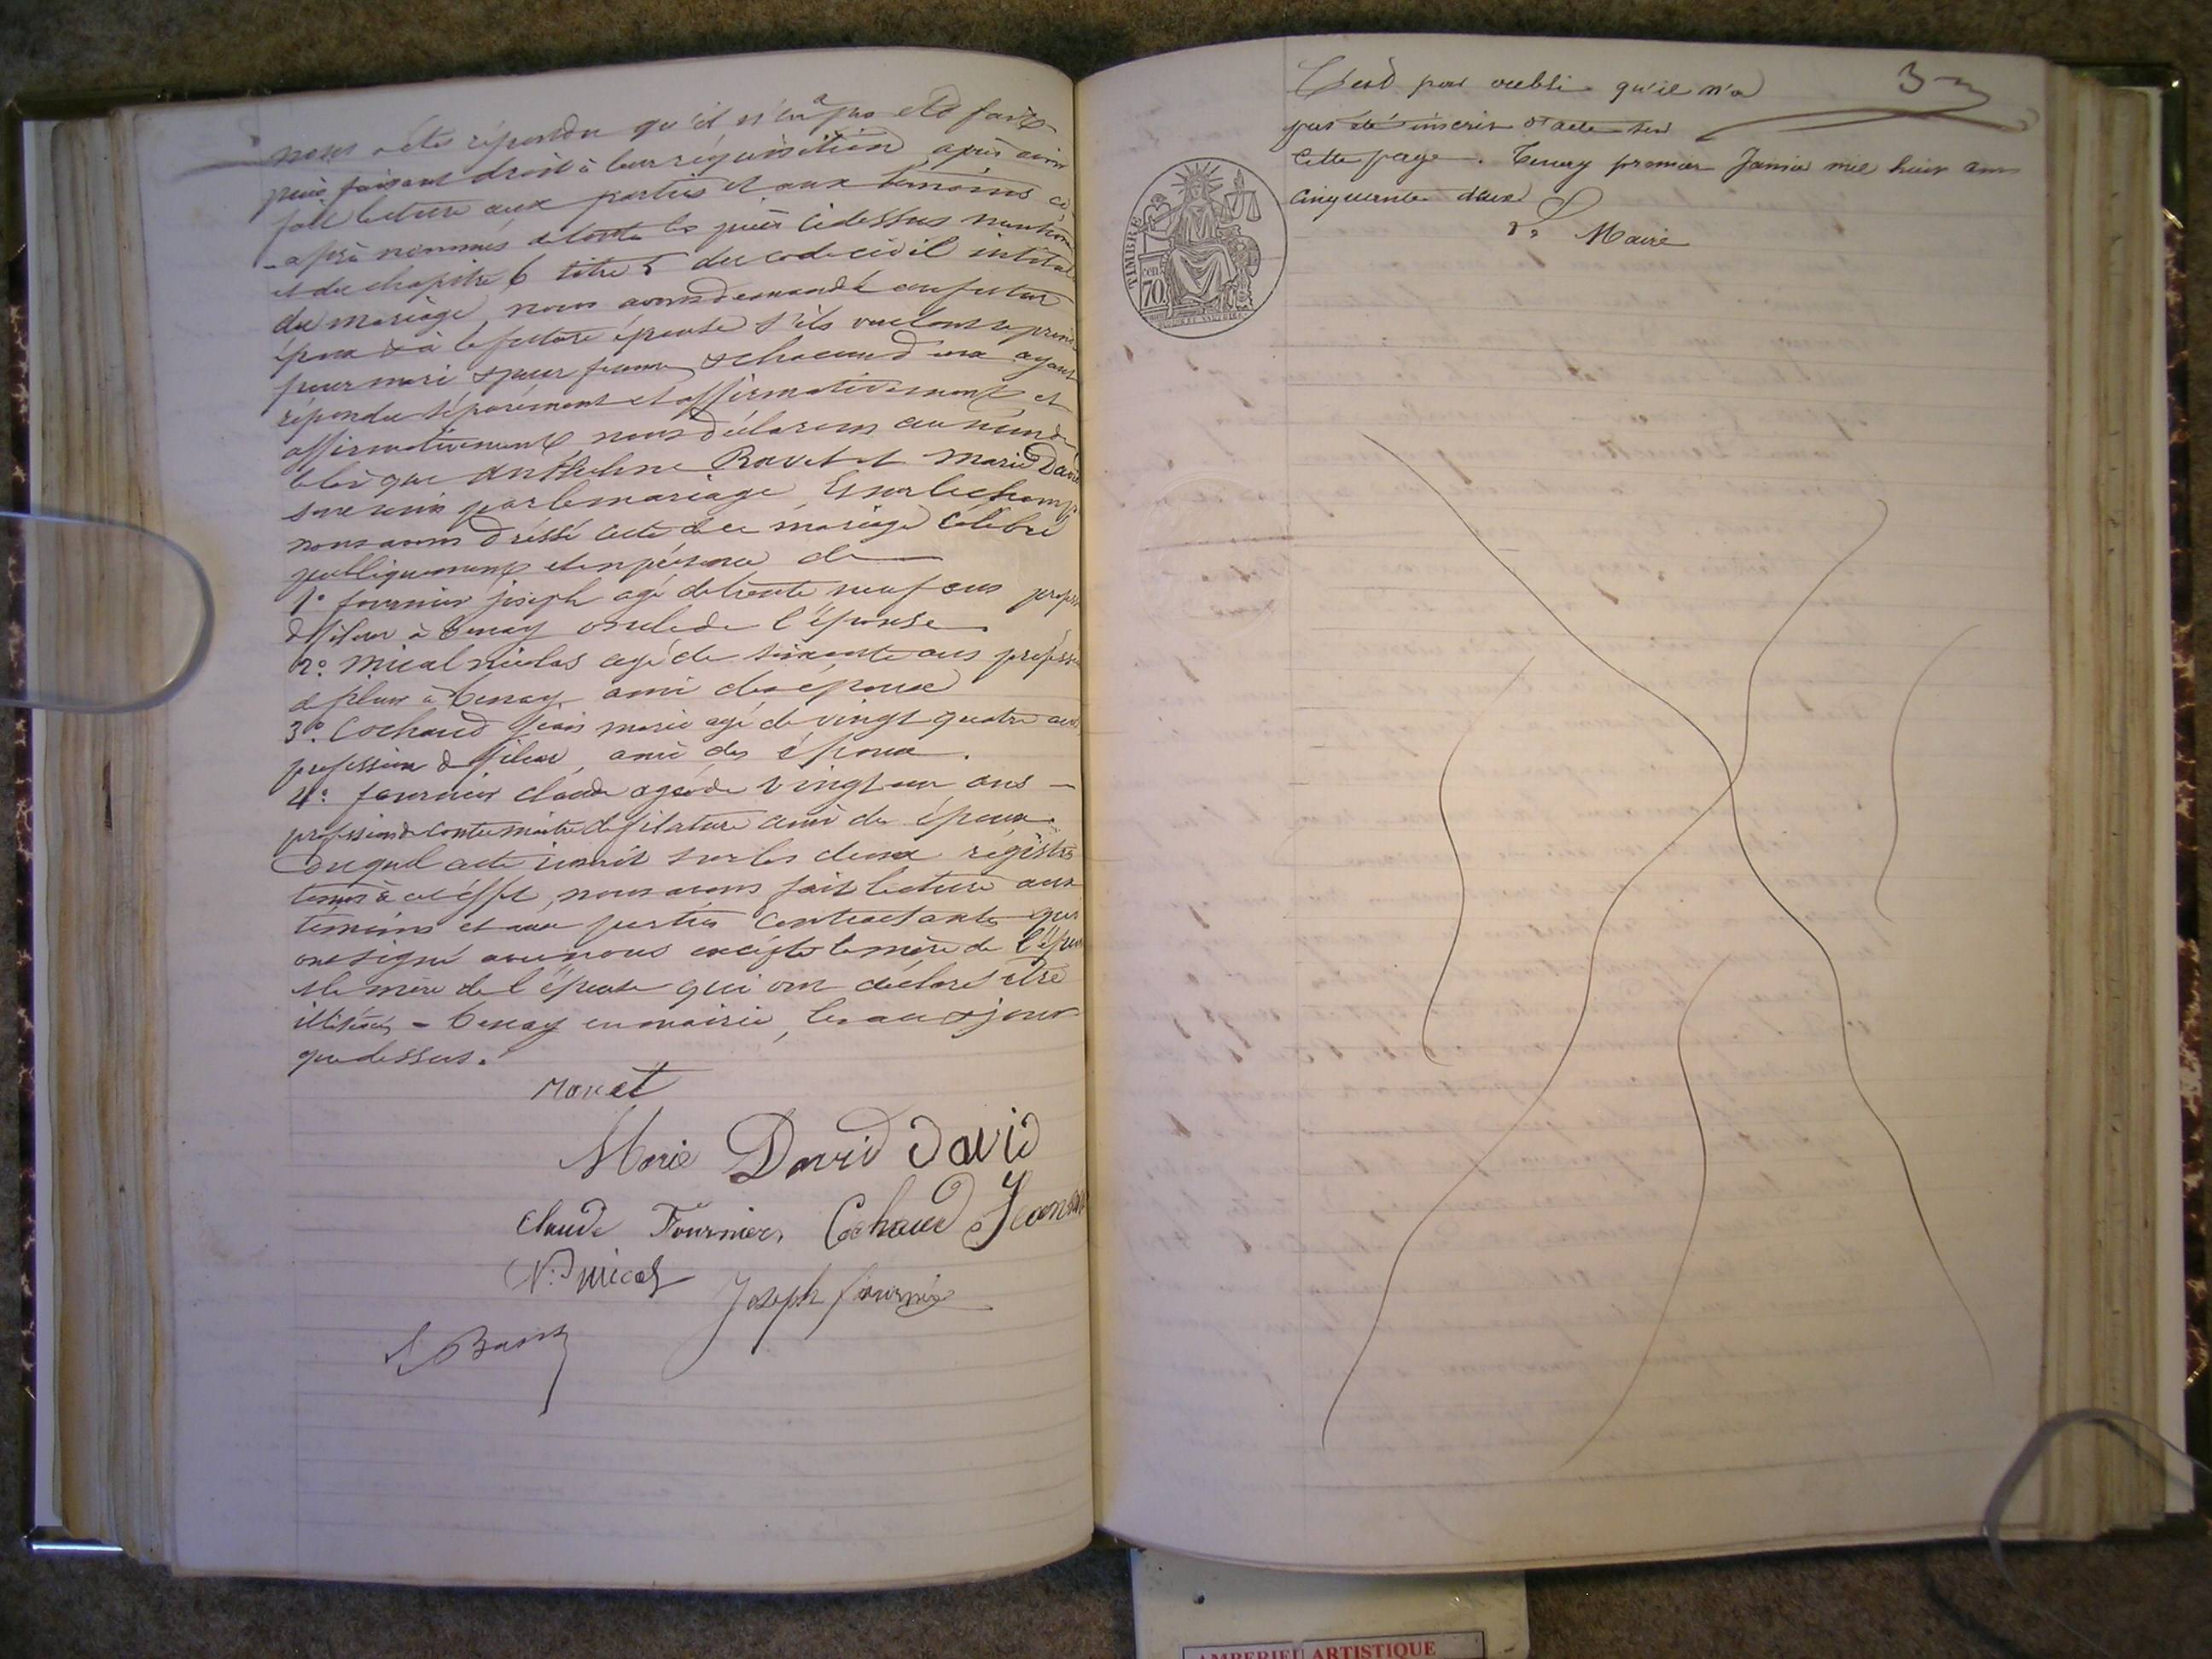 nous a été répondu qu'il n'en a pas été fait
puis faisant droit à leur réquisition, après avoir
fait lecture aux parties et aux témoins ci
-après nommés de toutes les pièces ci dessus mention
et du chapitre 6 titre 5 du code civil intitulé
du mariage, nous avons demandé au futur
époux & à la future épouse s'ils veulent se prendre
pour mari & pour femme, & chacun d'eux ayant
répondu séparément et affirmativement et
affirmativement, nous déclarons au nom de
la loi que Anthelme Ravet et Marie David
sont unis par le mariage. Et sur le champ
nous avons dressé acte de ce mariage célébré
publiquement et en présence de
1º fournier joseph agé de trente neuf ans profession
de fileur à Tenay oncle de l'épouse.
2º. Mical nicolas agé de soixante ans profession
de fileur à Tenay ami des époux
3º. Cochaud jean marie agé de vingt quatre ans,
profession de fileur, ami des époux.
4º. fournier claude agé de vingt un ans —
profession de contremaitre de filature ami des époux.
Duquel acte inscrit sur les deux registres
tenus à cet effet, nous avons fait lecture aux
témoins et aux parties contractantes qui
ont signé avec nous excepté la mère de l'époux
& la mère de l'épouse qui ont déclaré être
illitérées - Tenay en mairie, les an & jour
que dessus.
Ravet
Marie David David
Claude Fournier, Cochaud Jean
N. Mical
Joseph fournier
C'est par oubli qu'il n'a
pas été inscrit d'acte sur
Cette page. Tenay premier Janvier mil huit cent
cinquante deux
Le Maire
TIMBRE
70
AMBERIEU ARTISTIQUE